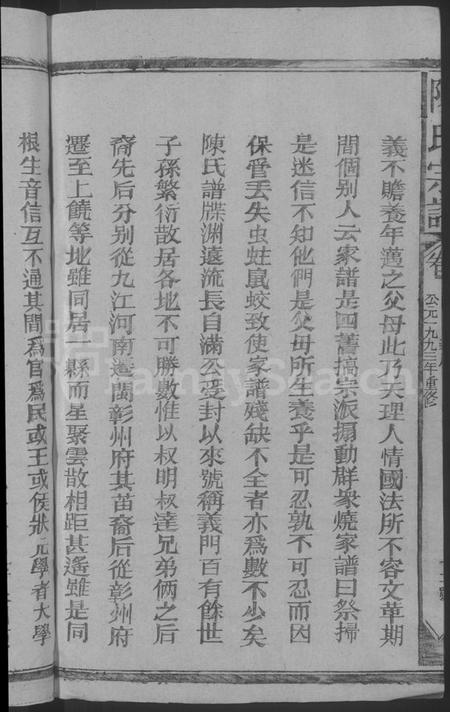 陳氏宗譜
卷
公元一九九三年重修
義不贍養年邁之父母此乃天理人情國法所不容文革期
間個别人云家譜是四舊搞宗派搧動群衆燒家譜曰祭掃
是迷信不知他們是父母所生養乎是可忍孰不可忍而因
保管丟失虫蛀鼠蛟致使家譜殘缺不全者亦爲數不少矣
陳氏譜牒渊遠流長自滿公受封以來號稱義門百有餘世
子孫繁衍散居各地不可勝數惟以权明权達兄弟俩之后
裔先后分别從九江河南遷閩彰州府其苗裔后從彰州府
遷至上饒等地雖同居一縣而星聚雲散相距甚遙雖是同
根生音信互不通其間爲官爲民或王或侯狀元學者大學
FamilySearch